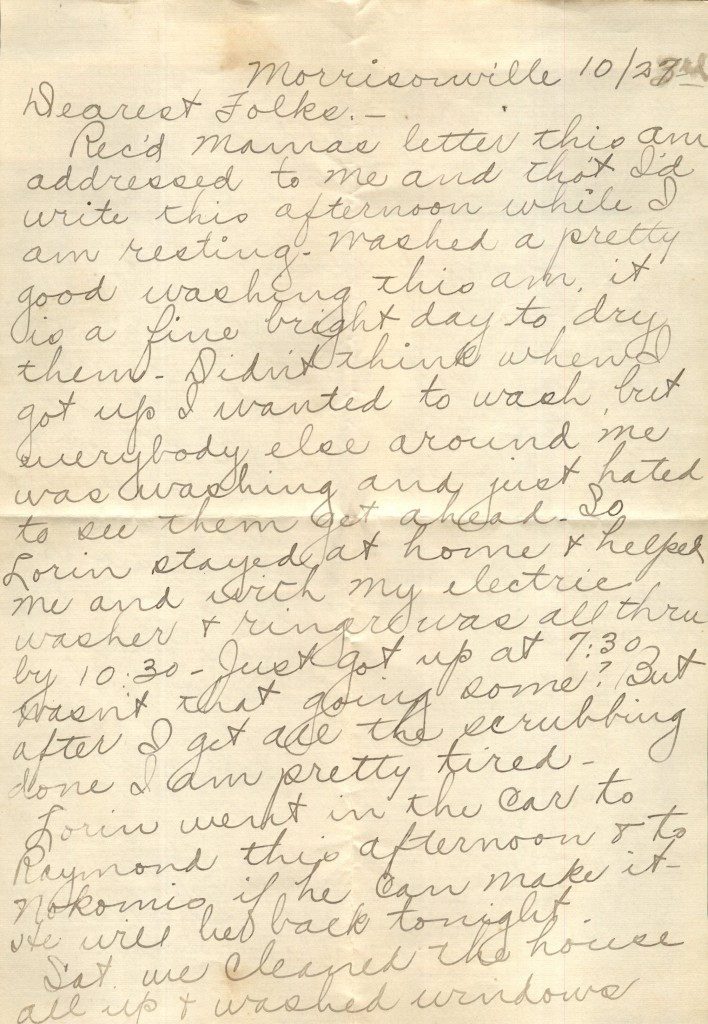 Morrisonville 10/23rd
Dearest Folks. -
Rec'd Mamas letter this am
addressed to me and thot I'd
write this afternoon while I
am resting - Washed a pretty
good washing this am, it
is a fine bright day to dry
them - Didn't think when I
got up I wanted to wash, but
everybody else around me
was washing and just hated
to see them get ahead - So
Lorin stayed at home & helped
me and with my electric
washer & ringer was all thru
by 10:30 - Just got up at 7:30
wasn't that going some? But
after I get all the scrubbing
done I am pretty tired -
Lorin went in the Car to
Raymond this afternoon & to
Nokomis if he can make it -
He will be back tonight.
Sat. we cleaned the house
all up & washed windows